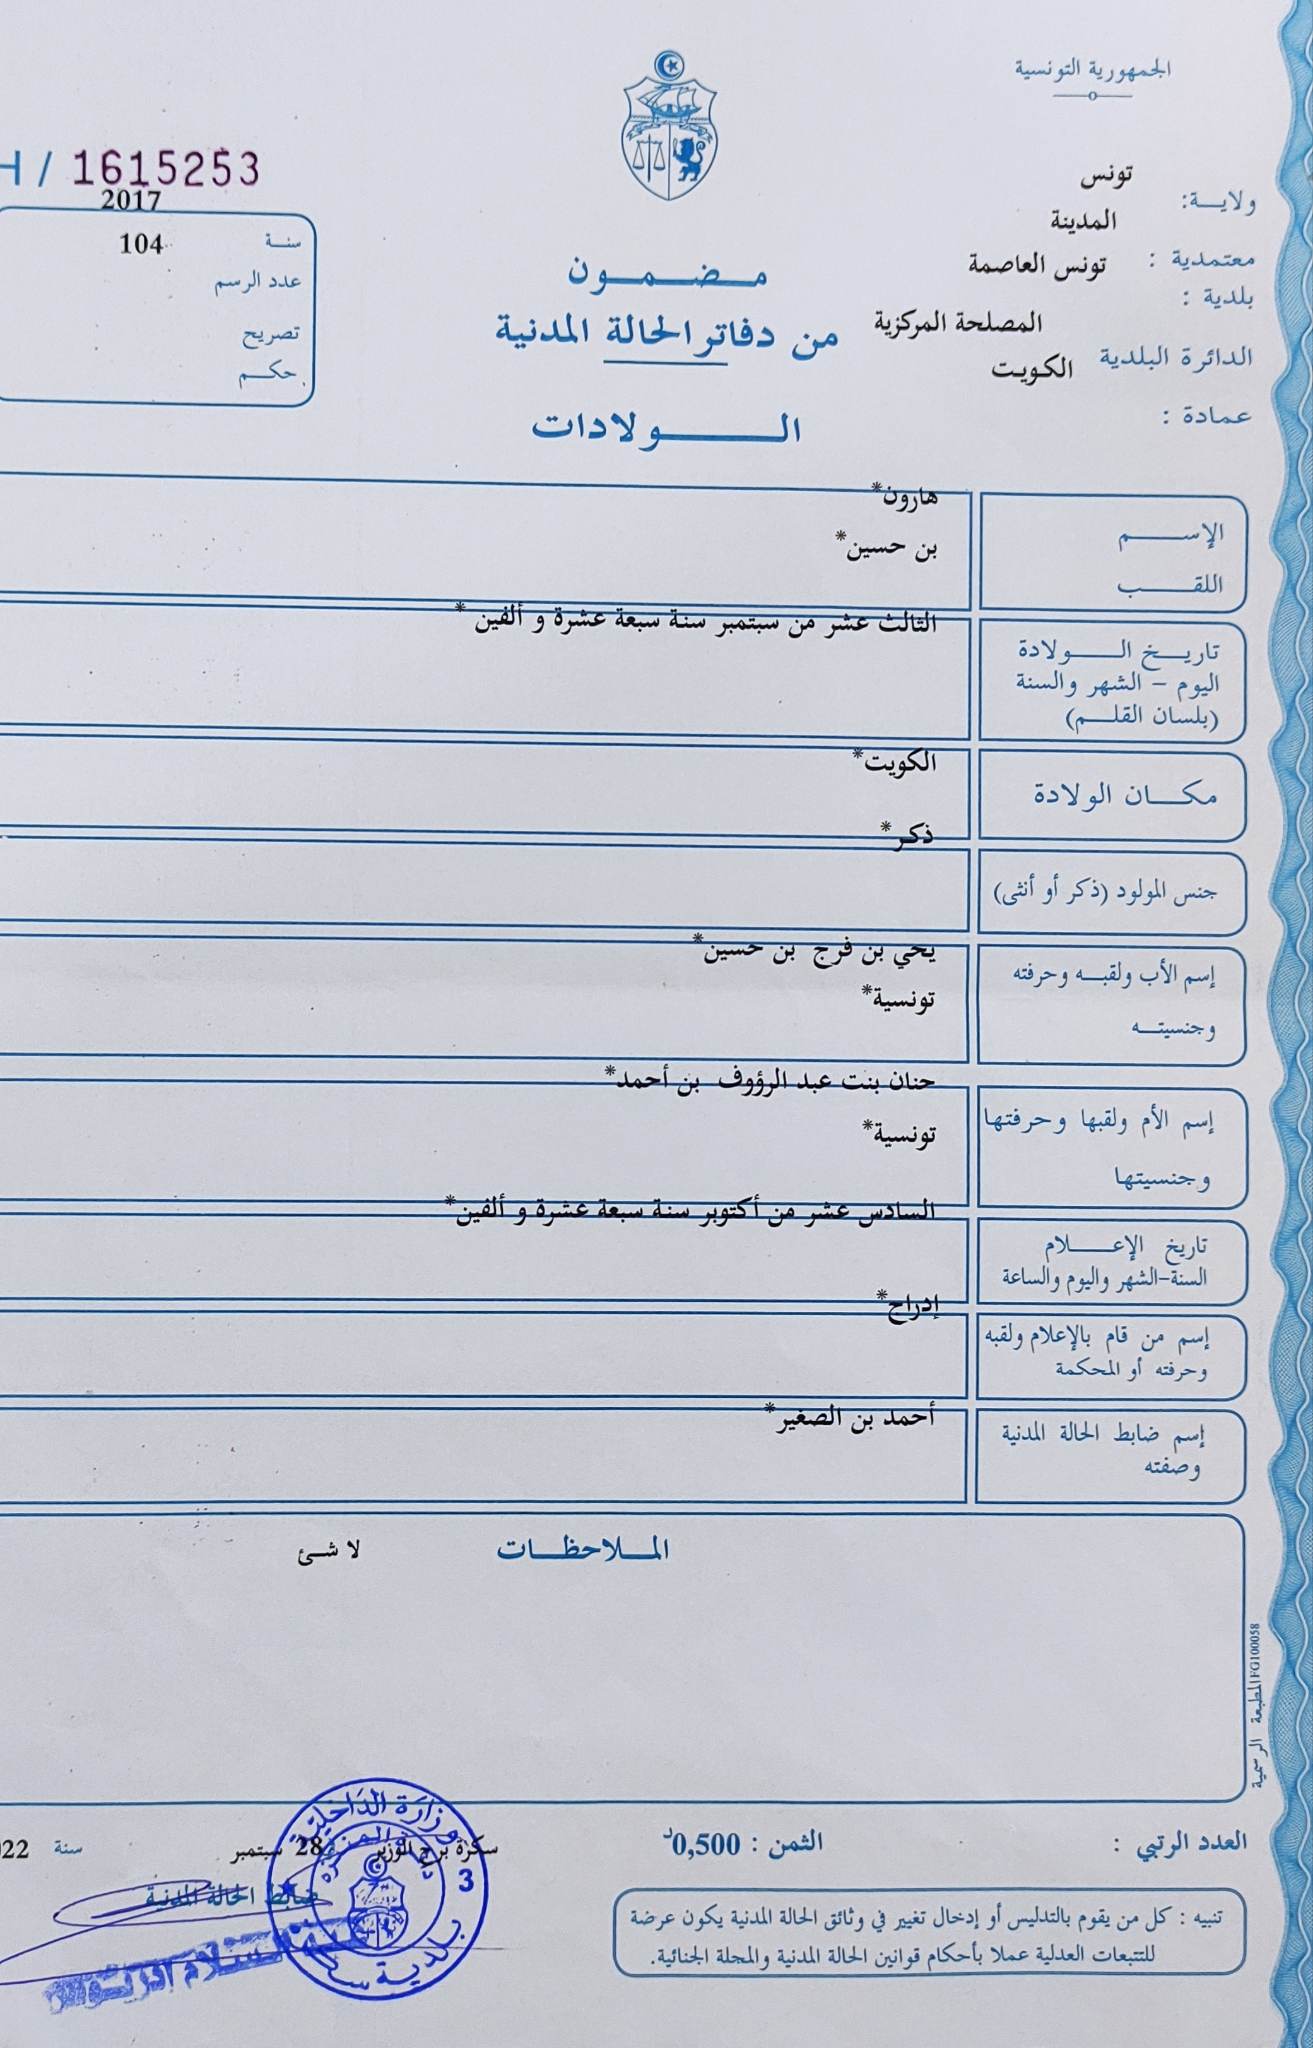 الجمهورية التونسية
H / 1615253
ولايـــة: تونس
معتمدية : المدينة
بلدية : تونس العاصمة
الدائرة البلدية المصلحة المركزية
عمادة : الكويت
2017
سنة 104
عدد الرسم
تصريح
حكــم
مــضــمــون
من دفاتر الحالة المدنية
الــولادات
الإســـم هارون*
اللقــب بن حسين*
تاريــخ الــولادة الثالث عشر من سبتمبر سنة سبعة عشرة و ألفين *
اليوم – الشهر والسنة
(بلسان القلــم)
مكــان الولادة الكويت*
جنس المولود (ذكر أو أنثى) ذكر*
إسم الأب ولقبـه وحرفته يحي بن فرج بن حسين*
وجنسيتـه تونسية*
إسم الأم ولقبها وحرفتها حنان بنت عبد الرؤوف بن أحمد*
وجنسيتها تونسية*
تاريخ الإعـــلام السادس عشر من أكتوبر سنة سبعة عشرة و ألفين*
السنة-الشهر واليوم والساعة
إسم من قام بالإعلام ولقبه إدراج*
وحرفته أو المحكمة
إسم ضابط الحالة المدنية أحمد بن الصغير*
وصفته
المــلاحظــات لا شئ
المطبعة الرسمية FG100058
العدد الرتبي :
الثمن : 0,500د
سكرة برج الوزير في 28 سبتمبر سنة 22
ضابط الحالة المدنية
وزارة الداخلية
بلدية سكرة
3
تنبيه : كل من يقوم بالتدليس أو إدخال تغيير في وثائق الحالة المدنية يكون عرضة
للتتبعات العدلية عملا بأحكام قوانين الحالة المدنية والمجلة الجنائية.